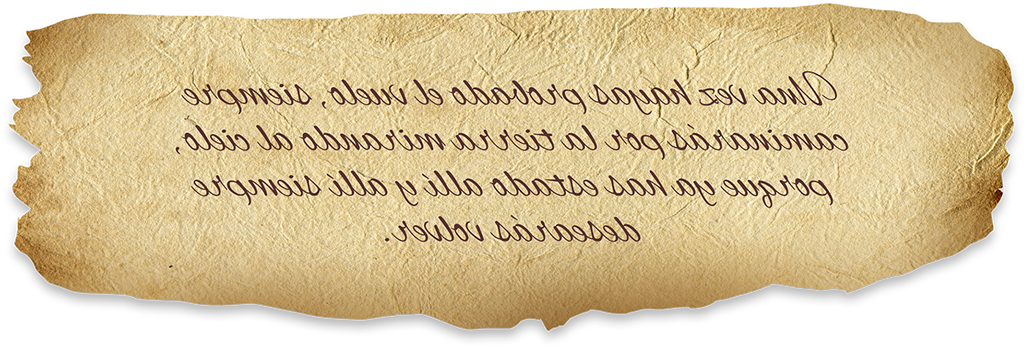 Una vez hayas probado el vuelo, siempre
caminarás por la tierra mirando al cielo,
porque ya has estado allí y allí siempre
desearás volver.